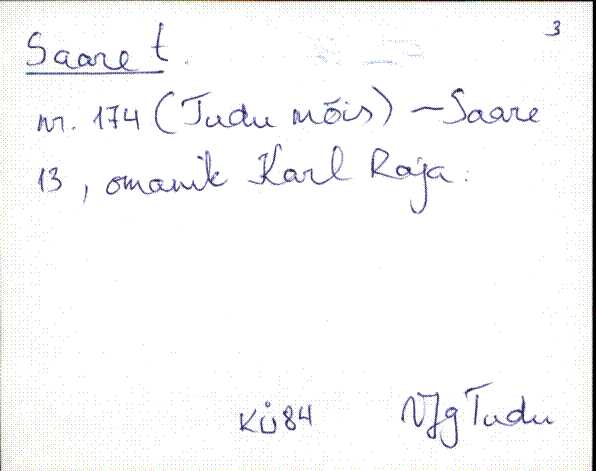 3
Saare t.
nr. 174 (Tudu mõis) – Saare
13, omanik Karl Raja.
KÜ84 VJg Tudu